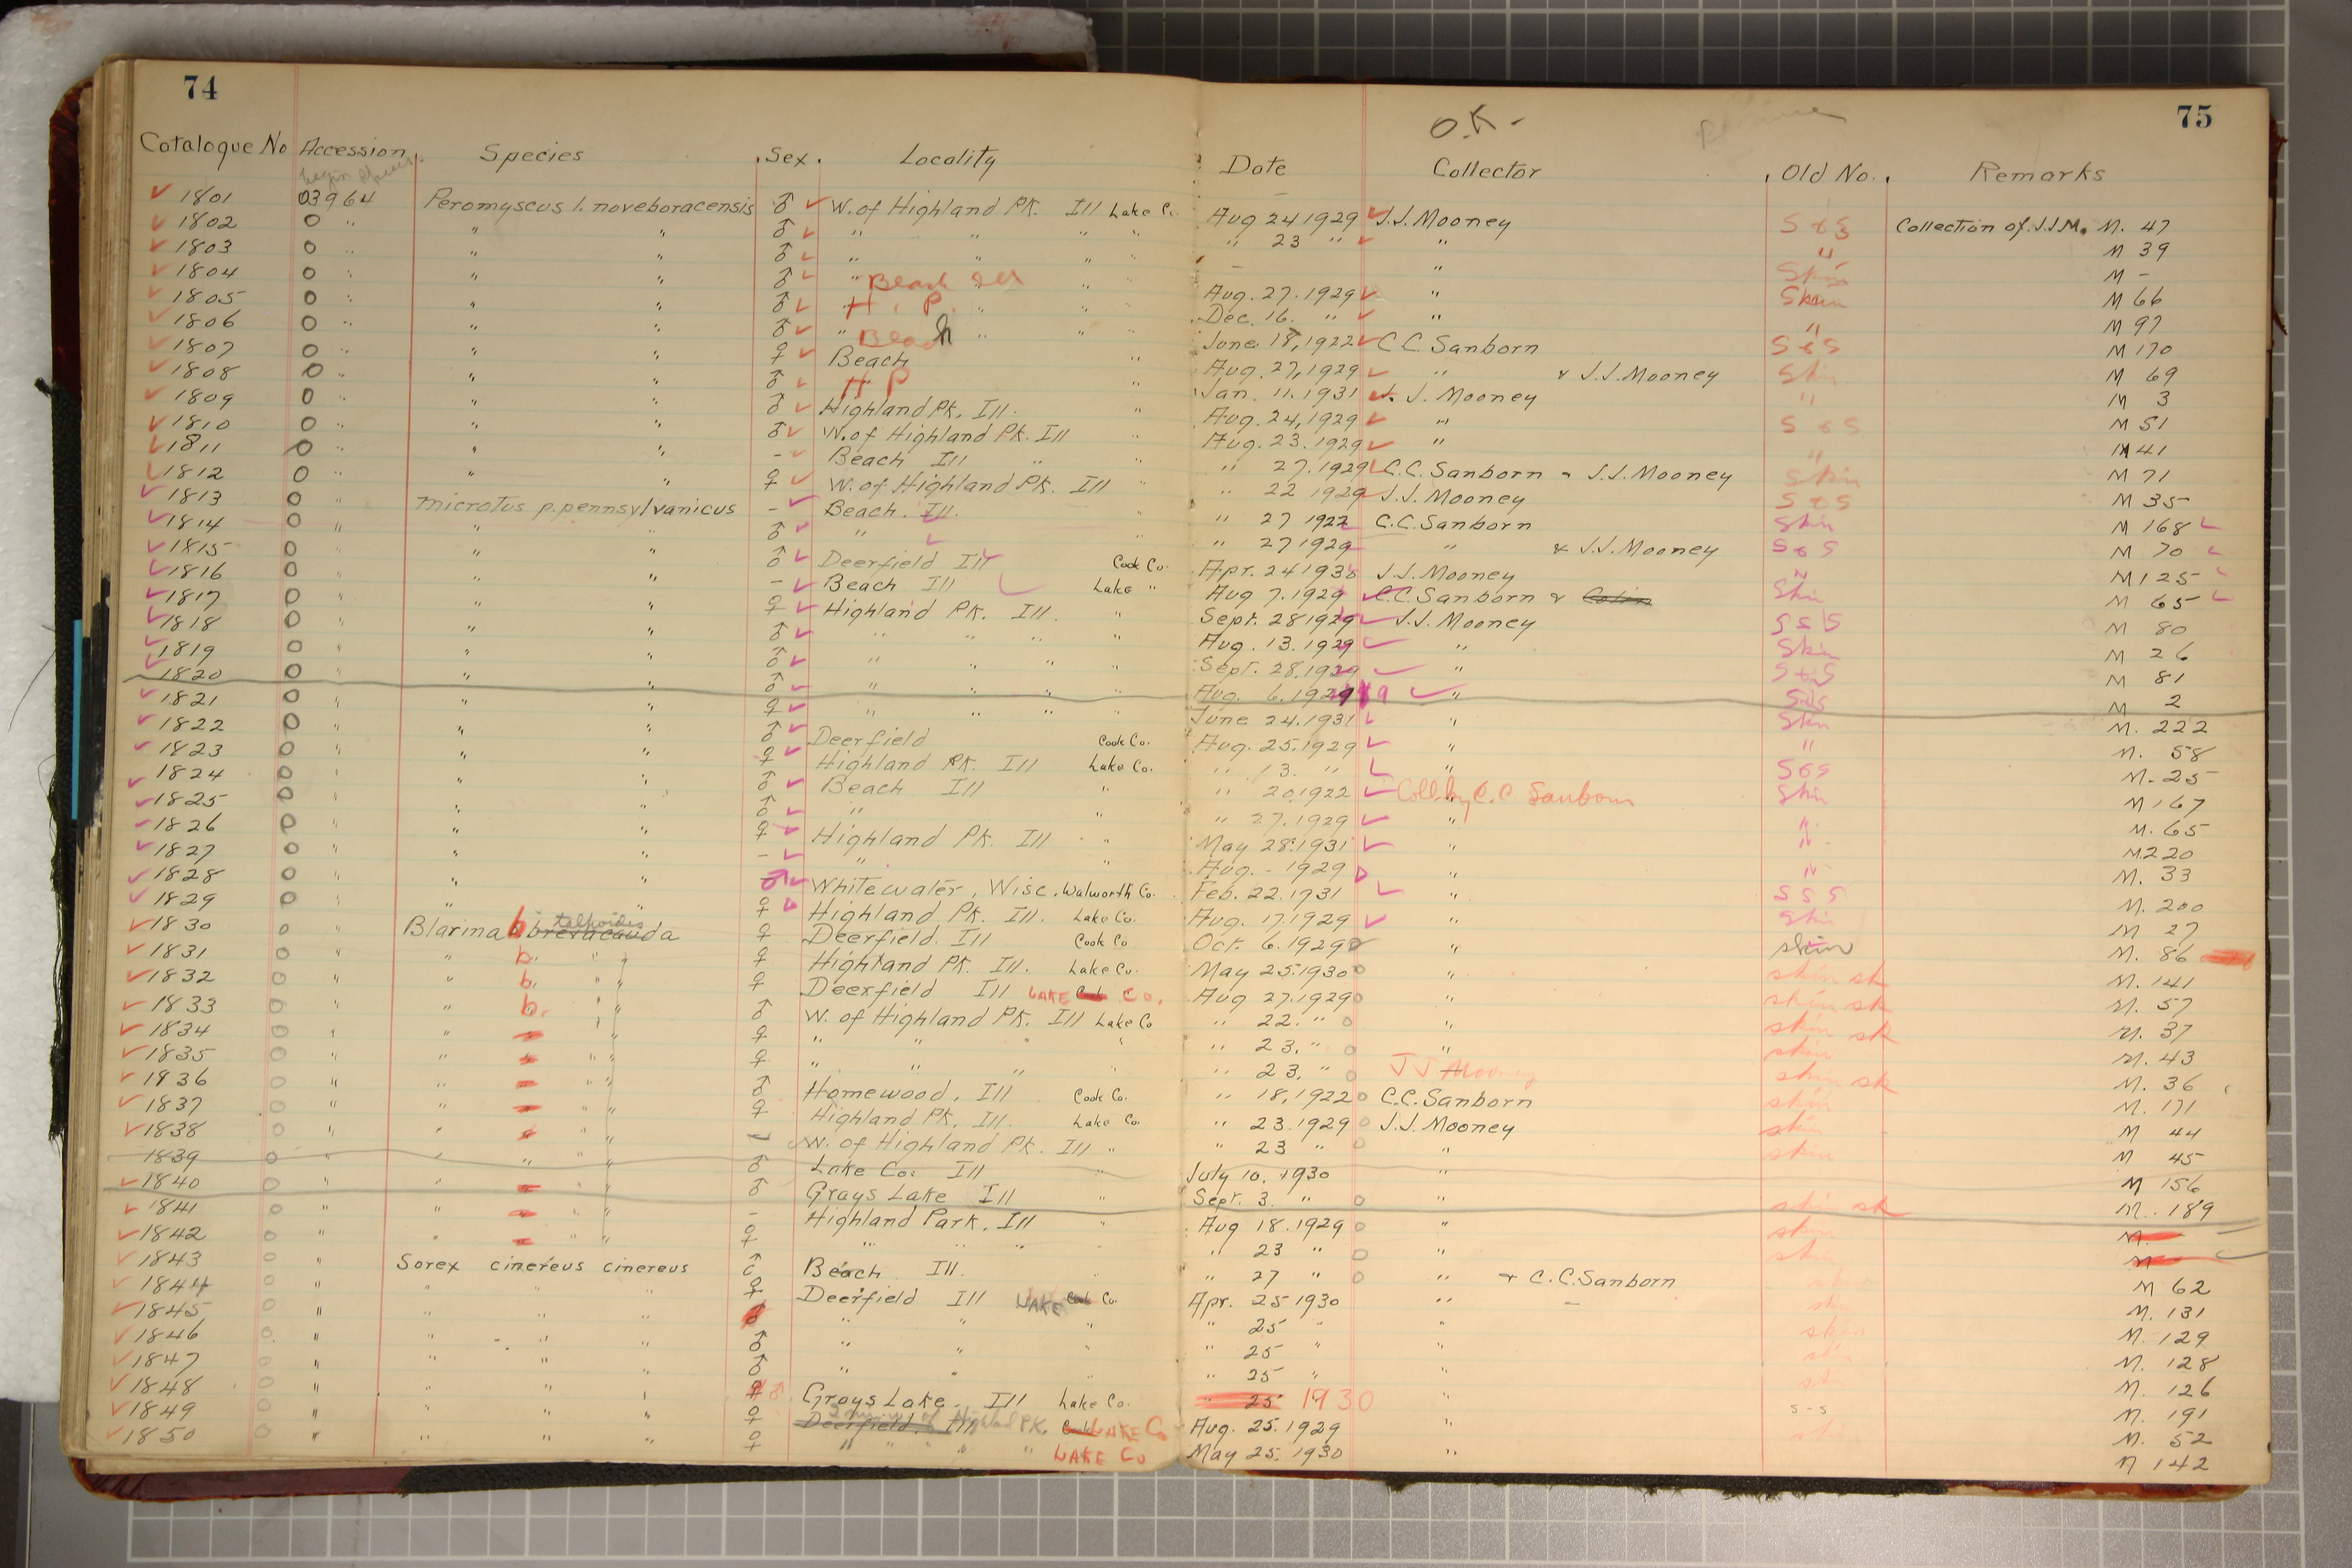 74
75
O.K.-
Catalogue No Accession Species Sex. Locality Date Collector Old No. Remarks
1801 03964 Peromyscus l. noveboracensis ♂ W. of Highland Pk. Ill Lake Co. Aug 24 1929 J.J. Mooney S & S Collection of J.J.M. M. 47
1802 0 " " " ♂ " " " " " 23 " " " M 39
1803 0 " " " ♂ " " " " - " Skin M -
1804 0 " " " ♂ " Beach Ill " Aug. 27. 1929 " Skin M 66
1805 0 " " " ♂ " H. P. " " " Dec. 16. " " " M 97
1806 0 " " " ♂ " Beach " " " June 18, 1922 C.C. Sanborn S & S M 170
1807 0 " " " ♀ Beach " Aug. 27, 1929 " & J.J. Mooney Skin M 69
1808 0 " " " ♂ H P " Jan. 11. 1931 J. J. Mooney " M 3
1809 0 " " " ♂ Highland Pk. Ill. " Aug. 24, 1929 " S & S M 51
1810 0 " " " ♂ W. of Highland Pk. Ill " Aug. 23. 1929 " " M 41
1811 0 " " - Beach Ill " " " 27. 1929 C.C. Sanborn & J.J. Mooney Skin M 71
1812 0 " " " ♀ W. of Highland Pk. Ill " " 22 1929 J.J. Mooney S & S M 35
1813 0 " Microtus p. pennsylvanicus - Beach. Ill. " " 27 1922 C.C. Sanborn Skin M 168
1814 0 " " " ♂ " " " 27 1929 " & J.J. Mooney S & S M 70
1815 0 " " " ♂ Deerfield Ill Cook Co. Apr. 24 1930 J.J. Mooney " M 125
1816 0 " " " - Beach Ill Lake " Aug 7. 1929 C.C. Sanborn & Skin M 65
1817 0 " " " ♀ Highland Pk. Ill. " Sept. 28 1929 J.J. Mooney S & S M 80
1818 0 " " " ♂ " " " " Aug. 13. 1929 " Skin M 26
1819 0 " " " ♂ " " " " Sept. 28. 1929 " S & S M 81
1820 0 " " " ♂ " " " " Aug. 6. 1929 " S & S M 2
1821 0 " " " ♀ " " " June 24. 1931 " Skin M. 222
1822 0 " " " ♂ Deerfield Cook Co. Aug. 25. 1929 " " M. 58
1823 0 " " " ♀ Highland Pk. Ill Lake Co. " 13. " " S & S M. 25
1824 0 " " " ♂ Beach Ill " " 20. 1922 Coll. by C.C Sanborn Skin M 167
1825 0 " " " ♂ " " " 27. 1929 " " M. 65
1826 0 " " " ♀ Highland Pk. Ill " May 28. 1931 " " M. 220
1827 0 " " " - " " Aug. - 1929 " " M. 33
1828 0 " " " Whitewater, Wisc. Walworth Co. Feb. 22. 1931 " S & S M. 200
1829 0 " " " ♀ Highland Pk. Ill. Lake Co. Aug. 17. 1929 " Skin M 27
1830 0 " Blarina b. brevicauda talpoides ♀ Deerfield. Ill Cook Co Oct. 6. 1929 " skin M. 86
1831 0 " " b. " ♀ Highland Pk. Ill. Lake Co. May 25. 1930 " skin sk M. 141
1832 0 " " b. " ♀ Deerfield Ill LAKE Co. Aug 27. 1929 " skin sk M. 57
1833 0 " " b. " ♂ W. of Highland Pk. Ill Lake Co " 22. " " skin sk M. 37
1834 0 " " " ♀ " " " " " 23. " " skin M. 43
1835 0 " " " ♀ " " " " " 23. " J J Mooney skin sk M. 36
1936 0 " " " ♂ Homewood, Ill Cook Co. " 18, 1922 C.C. Sanborn skin M. 171
1837 0 " " " ♀ Highland Pk. Ill. Lake Co. " 23. 1929 J.J. Mooney skin M 44
1838 0 " " " - W. of Highland Pk. Ill " " 23 " " skin M 45
1839 0 " " " ♂ Lake Co. Ill " July 10. 1930 " M 156
1840 0 " " " ♂ Grays Lake Ill " Sept. 3. " " skin sk M. 189
1841 0 " " " - Highland Park. Ill Aug 18. 1929 " skin M.
1842 0 " " " ♀ " " " " 23 " " skin M
1843 0 " Sorex cinereus cinereus ♂ Beach Ill. " " 27 " " & C.C. Sanborn M 62
1844 0 " " " " ♀ Deerfield Ill LAKE Co. Apr. 25 1930 " skin M. 131
1845 0 " " " " " " " " 25 " " skin M. 129
1846 0 " " " " ♂ " " " " 25 " " skin M. 128
1847 0 " " " " ♂ " " " " 25 " M. 126
1848 0 " " " " Grays Lake. Ill Lake Co. " 25 1930 " s-s M. 191
1849 0 " " " " ♀ Deerfield. Ill Highland Pk. LAKE Co Aug. 25. 1929 " M. 52
1850 0 " " " " ♀ " " " " LAKE Co May 25. 1930 " M 142